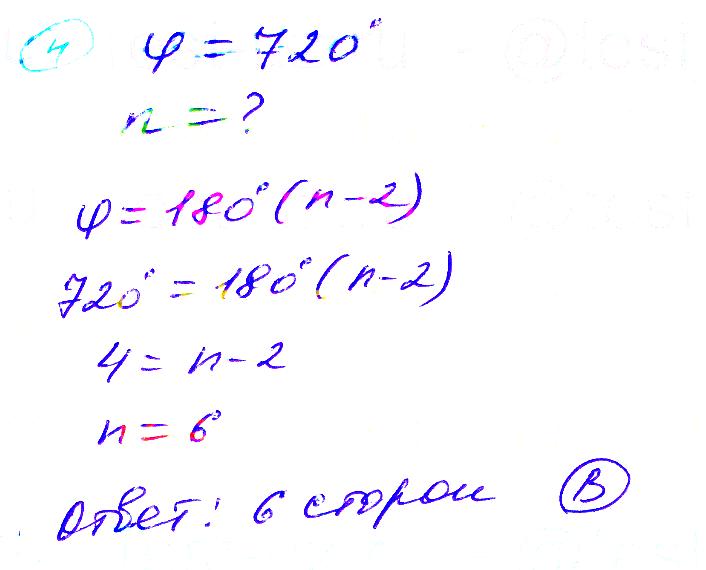 4 φ = 720°
n = ?
φ = 180° (n - 2)
720° = 180° (n - 2)
4 = n - 2
n = 6
Ответ: 6 сторон В